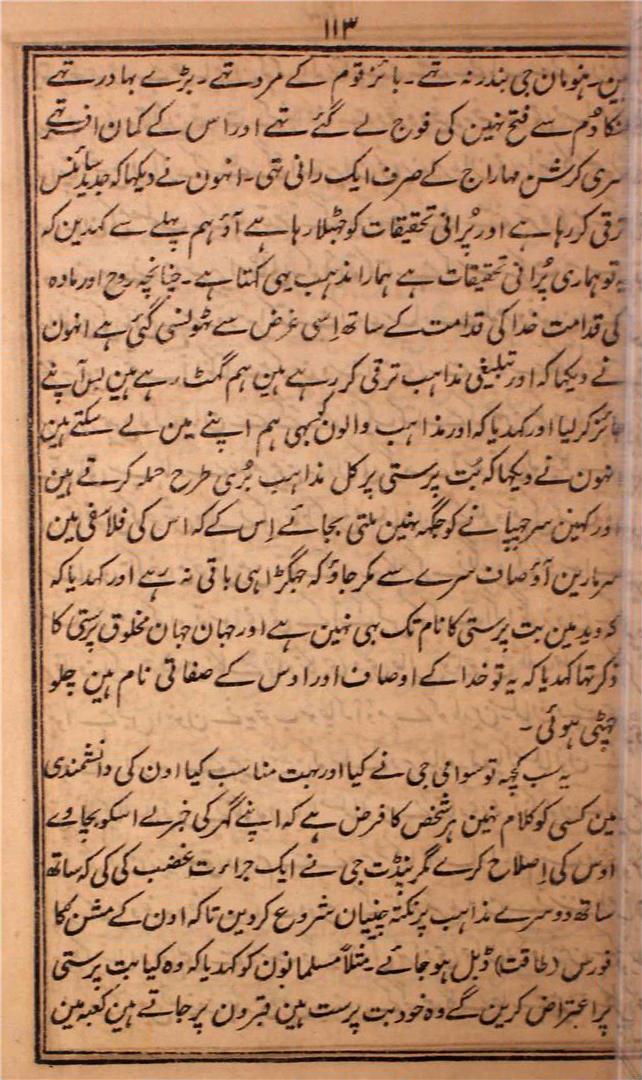 ۱۱۳
ہین۔ ہنومان جی بندر نہ تھے۔ بانر قوم کے مرد تھے۔ بڑے بہادر تھے
لنکا دُم سے فتح نہین کی فوج لے گئے تھے اور اس کے کمان افسر تھے
سری کرشن مہاراج کے صرف ایک رانی تھی۔ انہون نے دیکہا کہ جدید سائنس
ترقی کر رہا ہے اور پُرانی تحقیقات کو جہٹلا رہا ہے آؤ ہم پہلے سے کہدین کہ
یہ تو ہماری پُرانی تحقیقات ہے ہمارا مذہب یہی کہتا ہے۔ چنانچہ روح اور مادہ
کی قدامت خدا کی قدامت کے ساتھ اِسی غرض سے ٹھونسی گئی ہے انہون
نے دیکہا کہ اور تبلیغی مذاہب ترقی کر رہے ہین ہم گہٹ رہے ہین بس آپنے
جائز کر لیا اور کہدیا کہ اور مذاہب والون کو بہی ہم اپنے مین لے سکتے ہین
انہون نے دیکہا کہ بُت پرستی پر کل مذاہب بُری طرح حملہ کرتے ہین
اور کہین سر چہپانے کو جگہ نہین ملتی بجائے اِس کے کہ اس کی فلاسفی مین
سر مارین آؤ صاف سرے سے مکر جاؤ کہ جہگڑا ہی باقی نہ رہے اور کہدیا کہ
کہ وید مین بت پرستی کا نام تک بہی نہین ہے اور جہان جہان مخلوق پرستی کا
ذکر تہا کہدیا کہ یہ تو خدا کے اوصاف اور اوس کے صفاتی نام ہین چلو
چہٹی ہوئی۔
یہ سب کچہہ تو سوامی جی نے کیا اور بہت مناسب کیا اون کی دانشمندی
مین کسی کو کلام نہین ہر شخص کا فرض ہے کہ اپنے گہر کی خبر لے اسکو بچاوے
اوس کی اِصلاح کرے مگر پنڈت جی نے ایک جراءت غضب کی کی کہ ساتھ
ساتھ دوسرے مذاہب پر نکتہ چینیان شروع کر دین تاکہ اون کے مشن کا
فورس (طاقت) ڈبل ہو جائے۔ مثلاً مسلمانون کو کہدیا کہ وہ کیا بت پرستی
پر اعتراض کرین گے وہ خود بت پرست ہین قبرون پر جاتے ہین کعبہ مین